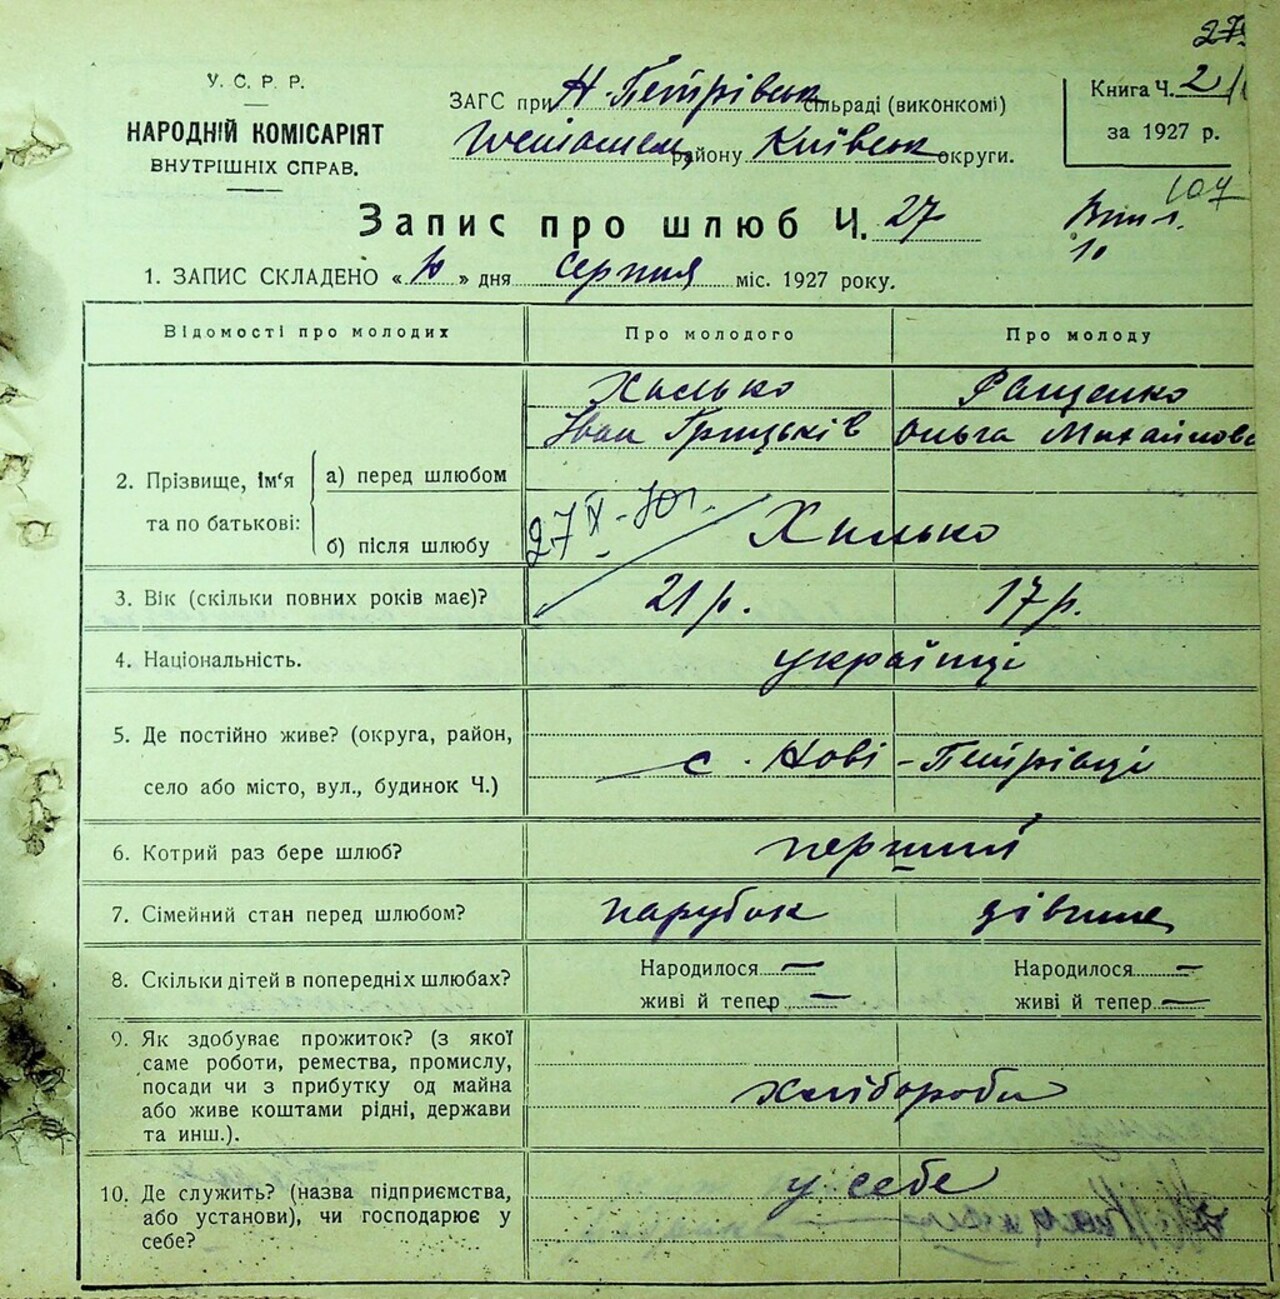 27
У. С. Р. Р.
НАРОДНІЙ КОМІСАРІЯТ
ВНУТРІШНІХ СПРАВ.
ЗАГС при Н-Петрівськ сільраді (виконкомі)
району Київськ округи.
Книга Ч. 2
за 1927 р.
107
Запис про шлюб Ч. 27
10
1. ЗАПИС СКЛАДЕНО « 10 » дня серпня міс. 1927 року.
Відомості про молодих
Про молодого
Про молоду
2. Прізвище, ім'я та по батькові:
а) перед шлюбом
Хилько
Іван Грицьків
Ращенко
Ольга Михайлова
б) після шлюбу
27 X - 30 г.
Хилько
3. Вік (скільки повних років має)?
21 р.
17 р.
4. Національність.
українці
5. Де постійно живе? (округа, район,
село або місто, вул., будинок Ч.)
с. Нові-Петрівці
6. Котрий раз бере шлюб?
перший
7. Сімейний стан перед шлюбом?
парубок
дівчина
8. Скільки дітей в попередніх шлюбах?
Народилося —
живі й тепер —
Народилося —
живі й тепер —
9. Як здобуває прожиток? (з якої
саме роботи, ремества, промислу,
посади чи з прибутку од майна
або живе коштами рідні, держави
та инш.).
хлібороби
10. Де служить? (назва підприємства,
або установи), чи господарює у
себе?
у себе